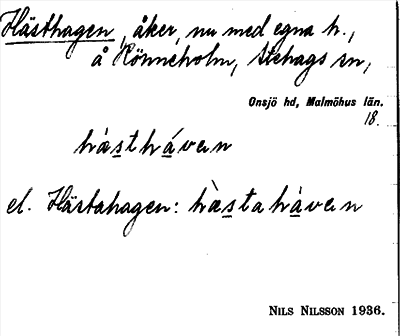 Hästhagen, åker, nu med egna h.,
å Rönneholm, Stehags sn,
Onsjö hd, Malmöhus län.
18.
hàsthávan
el. Hästahagen: hàstahàvan
NILS NILSSON 1936.